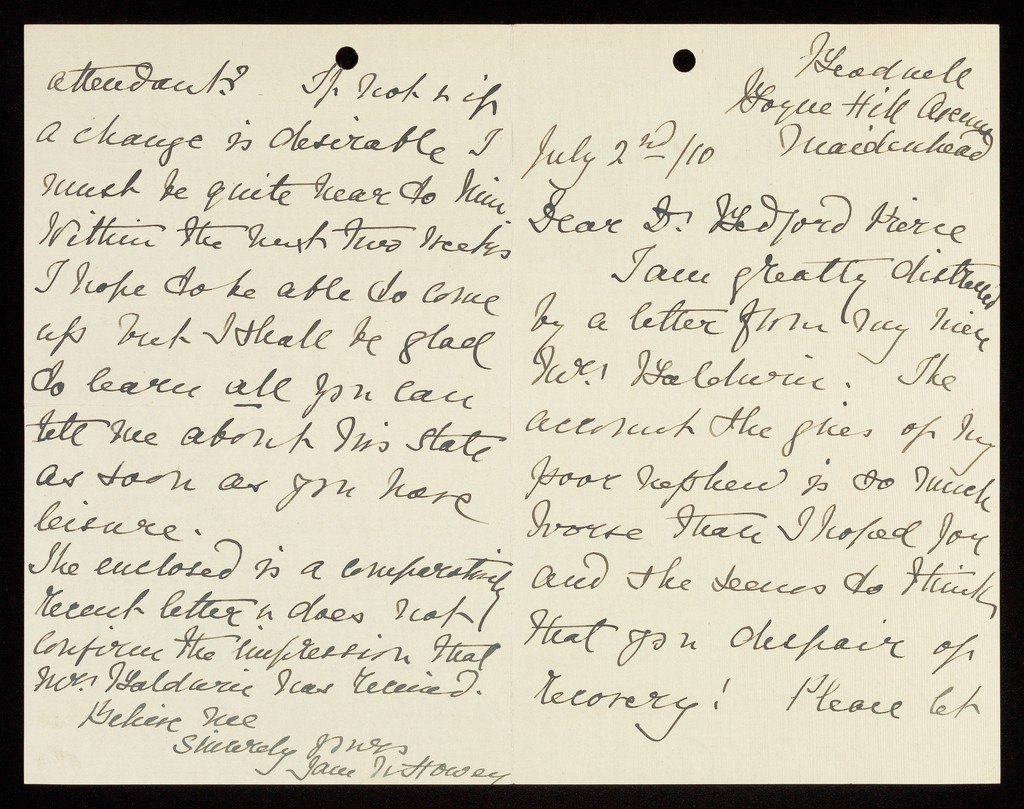 Headwell
Boyne Hill Avenue
Maidenhead
July 2nd/10
Dear Dr Bedford Pierce
I am greatly distressed
by a letter from my niece
Mrs Baldwin. The
account she gives of my
poor nephew is so much
worse than I hoped for
and she seems to think
that you despair of
recovery! Please let
attendant? If not & if
a change is desirable I
must be quite near to him.
Within the next two weeks
I hope to be able to come
up but I shall be glad
to learn all you can
tell me about his state
as soon as you have
leisure.
The enclosed is a comparatively
recent letter & does not
confirm the impression that
Mrs Baldwin has received.
Believe me
Sincerely yours
Howey